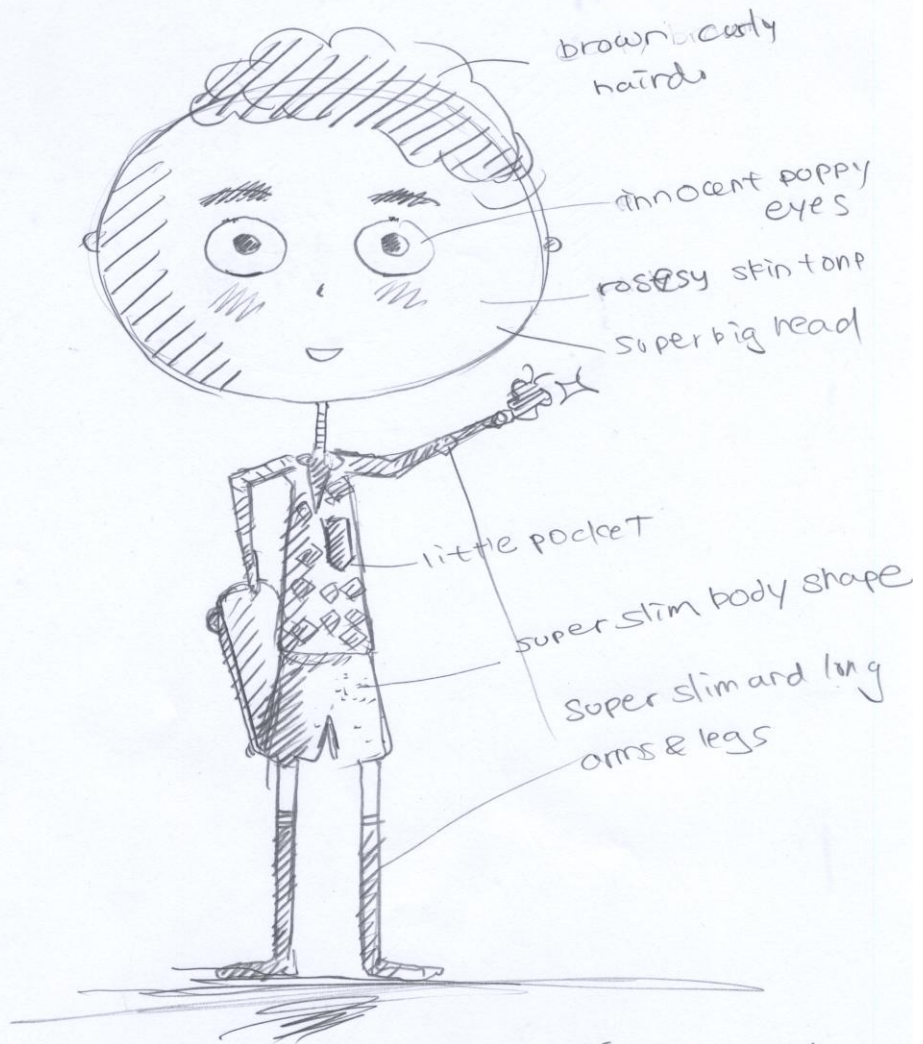 brown curly
hairdo
innocent poppy
eyes
rosesy skin tone
super big head
little pocket
super slim body shape
super slim and long
arms & legs